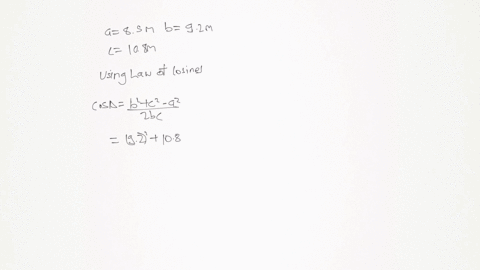 a = 8.3m b = 9.2m
c = 10.8m
Using Law of Cosines
cosA = b²+c²-a² / 2bc
= (9.2)² + 10.8